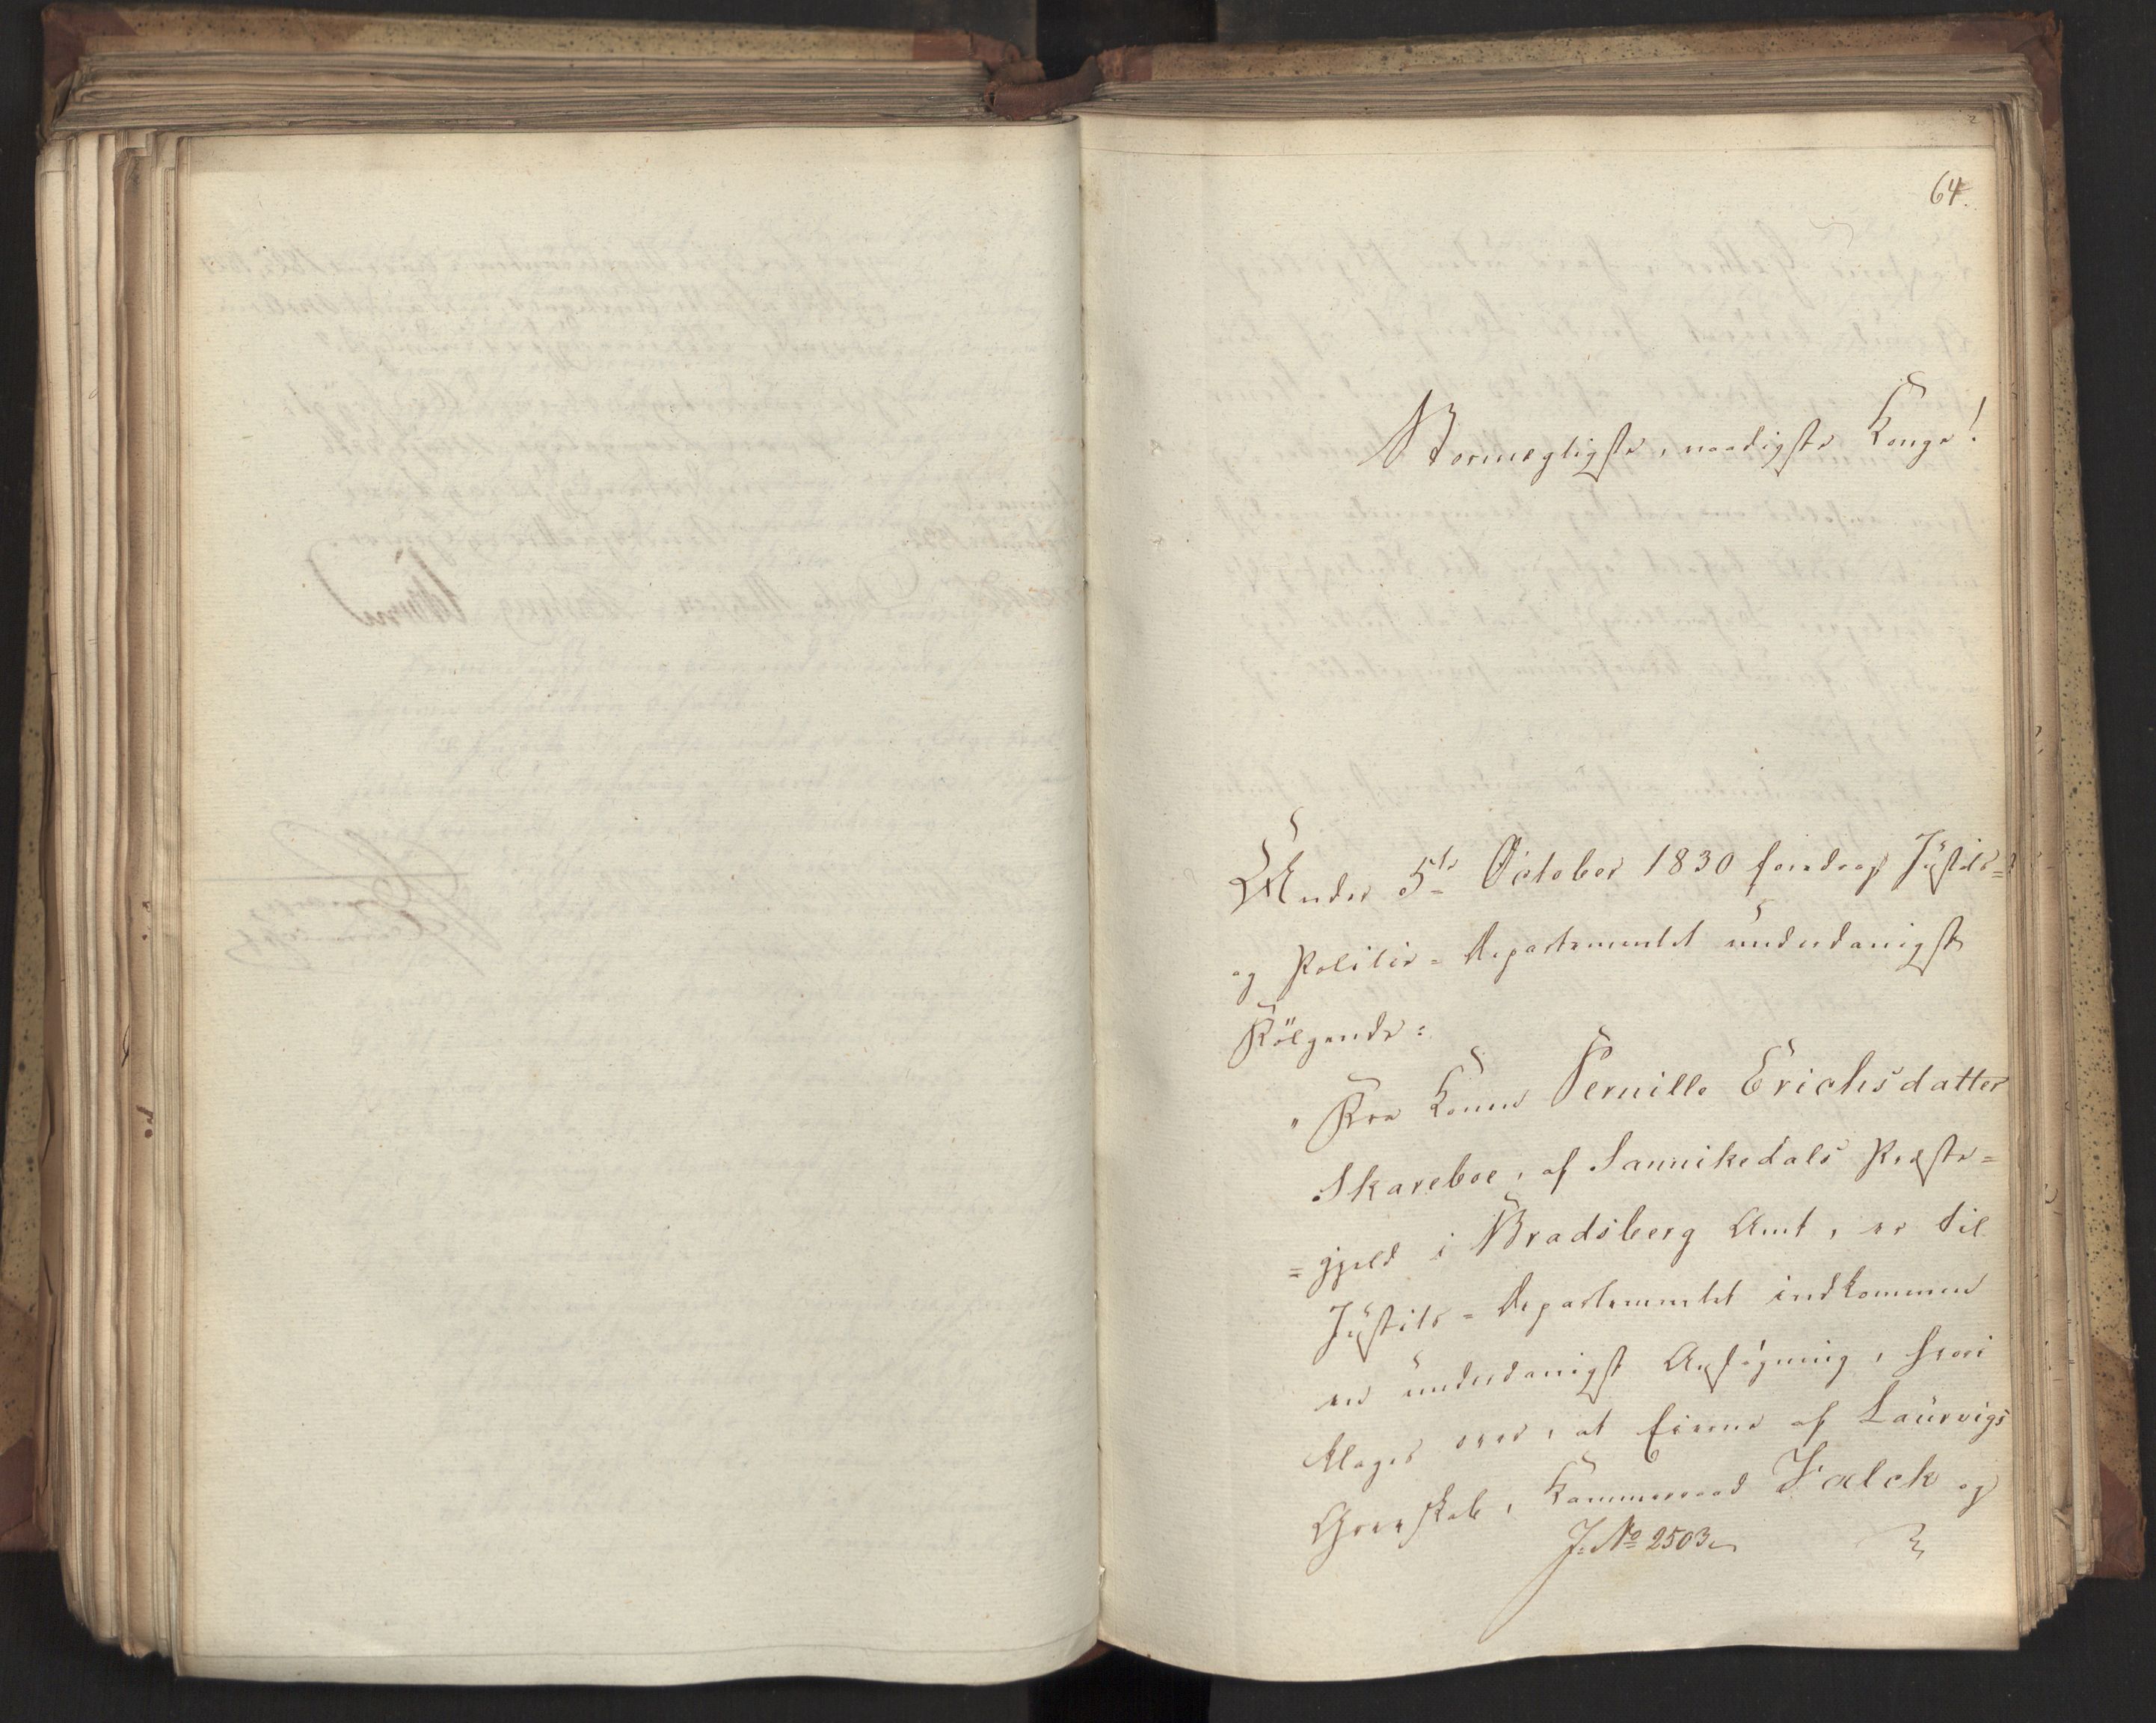 64.
Stormægtigste, naadigste Konge!
Under 5te October 1830 foredrog Justits=
og Politie=Departementet underdanigst
Fölgende:
"Fra Konen Pernille Erichsdatter
Skareboe, af Sannikedals Præste=
=gjeld i Bradsberg Amt, er til
Justits=Departementet indkommen
en underdanigst Ansögning, hvori
klages over, at Eierne af Laurvigs
Grevskab, Kammerraad Falck og
J. No 2503